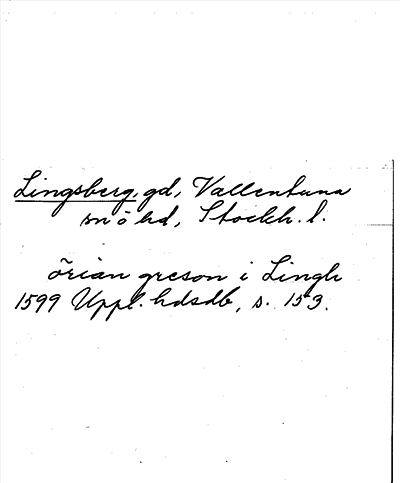 Lingsberg, gd, Vallentuna
sn o hd, Stockh. l.
örian greson i Lingb
1599 Uppl. hdsdb, s. 153.